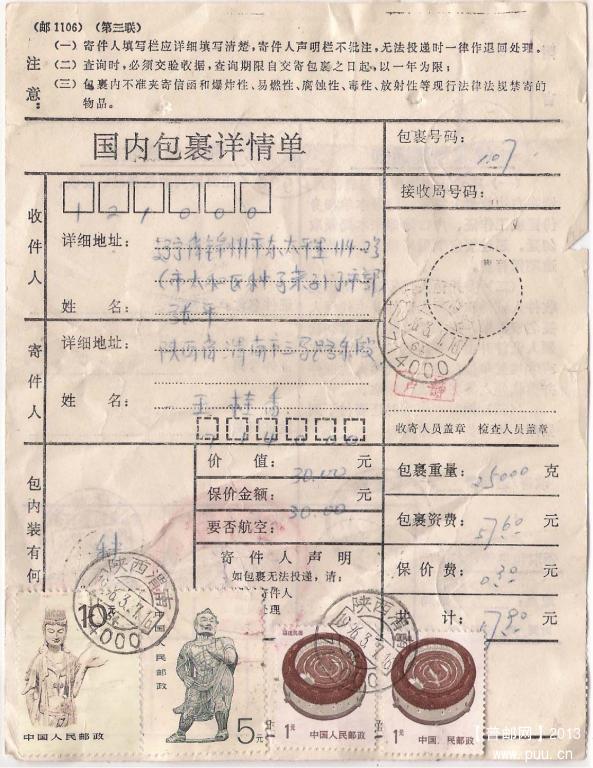 （邮1106）（第三联）
注意：
（一）寄件人填写栏应详细填写清楚，寄件人声明栏不批注，无法投递时一律作退回处理。
（二）查询时，必须交验收据，查询期限自交寄包裹之日起，以一年为限；
（三）包裹内不准夹寄信函和爆炸性、易燃性、腐蚀性、毒性、放射性等现行法律法规禁寄的
物品。
国内包裹详情单
包裹号码：
107
接收局号码：
收件人
121000
详细地址：
辽宁省锦州市东太平里444号
姓 名：
张平
寄件人
详细地址：
陕西省渭南市三号路东段
姓 名：
王桂香
714000
收寄人员盖章 检查人员盖章
包内装有何
价 值：
30.00
元
保价金额：
30.00
元
要否航空：
寄件人声明
如包裹无法投递，请：
件人
理
包裹重量：
25000
克
包裹资费：
5760
元
保价费：
0.30
元
共 计：
5790
元
陕西渭南
1996.3.7.16
714000
陕西渭南
1996.3.7.16
714000
10元
中国人民邮政
中国人民邮政
5元
1元
中国人民邮政
1元
中国 民邮政
【普邮网】2013
www.puu.cn